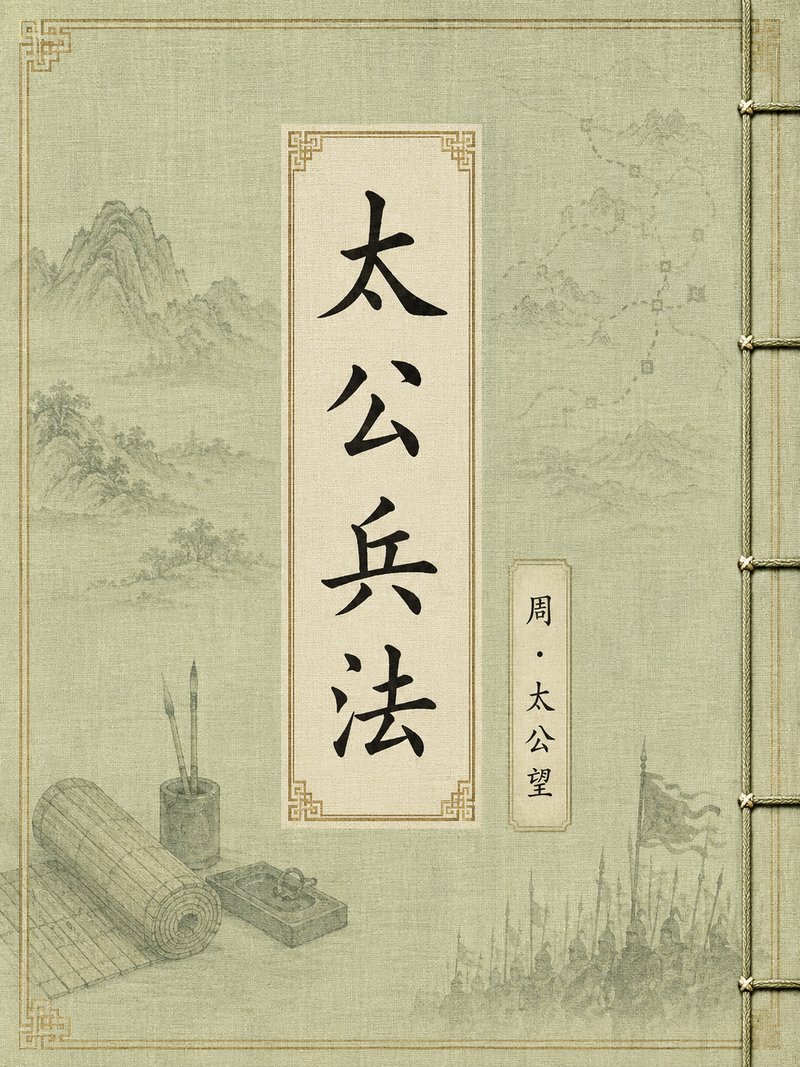 太公兵法
周·太公望